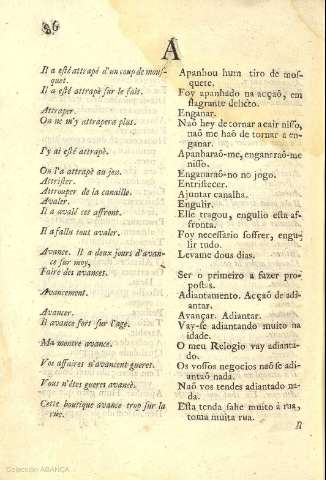 86
A
Il a esté attrapé d'un coup de mous-
quet.
Il a esté attrapé sur le fait.
Attraper.
On ne m'y attrapera plus.
I'y ai esté attrapé.
On l'a attrapé au jeu.
Attrister.
Attrouper de la canaille.
Avaler.
Il a avalé cet affront.
Il a fallu tout avaler.
Avance. Il a deux jours d'avan-
ce sur moy,
Faire des avances.
Avancement.
Avancer.
Il avance fort sur l'age.
Ma montre avance.
Vos affaires n'avancent gueres.
Vous n'êtes gueres avancè.
Cette boutique avance trop sur la
rue.
Apanhou hum tiro de mos-
quete.
Foy apanhado na acçaõ, em
flagrante delicto.
Enganar.
Naõ hey de tornar a cair nisso,
naõ me haõ de tornar a en-
ganar.
Apanharaõ-me, enganeraõ-me
nisso.
Enganaraõ-no no jogo.
Entristecer.
Ajuntar canalha.
Engulir.
Elle tragou, engulio esta af-
fronta.
Foy necessario soffrer, engu-
lir tudo.
Levame dous dias.
Ser o primeiro a fazer pro-
postas.
Adiantamento. Acçaõ de adi-
antar.
Avançar. Adiantar.
Vay-se adiantando muito na
idade.
O meu Relogio vay adianta-
do.
Os vossos negocios naõ se adi-
antaõ nada.
Naõ vos tendes adiantado na-
da.
Esta tenda sahe muito á rua,
toma muita rua.
R
Colección ABANCA